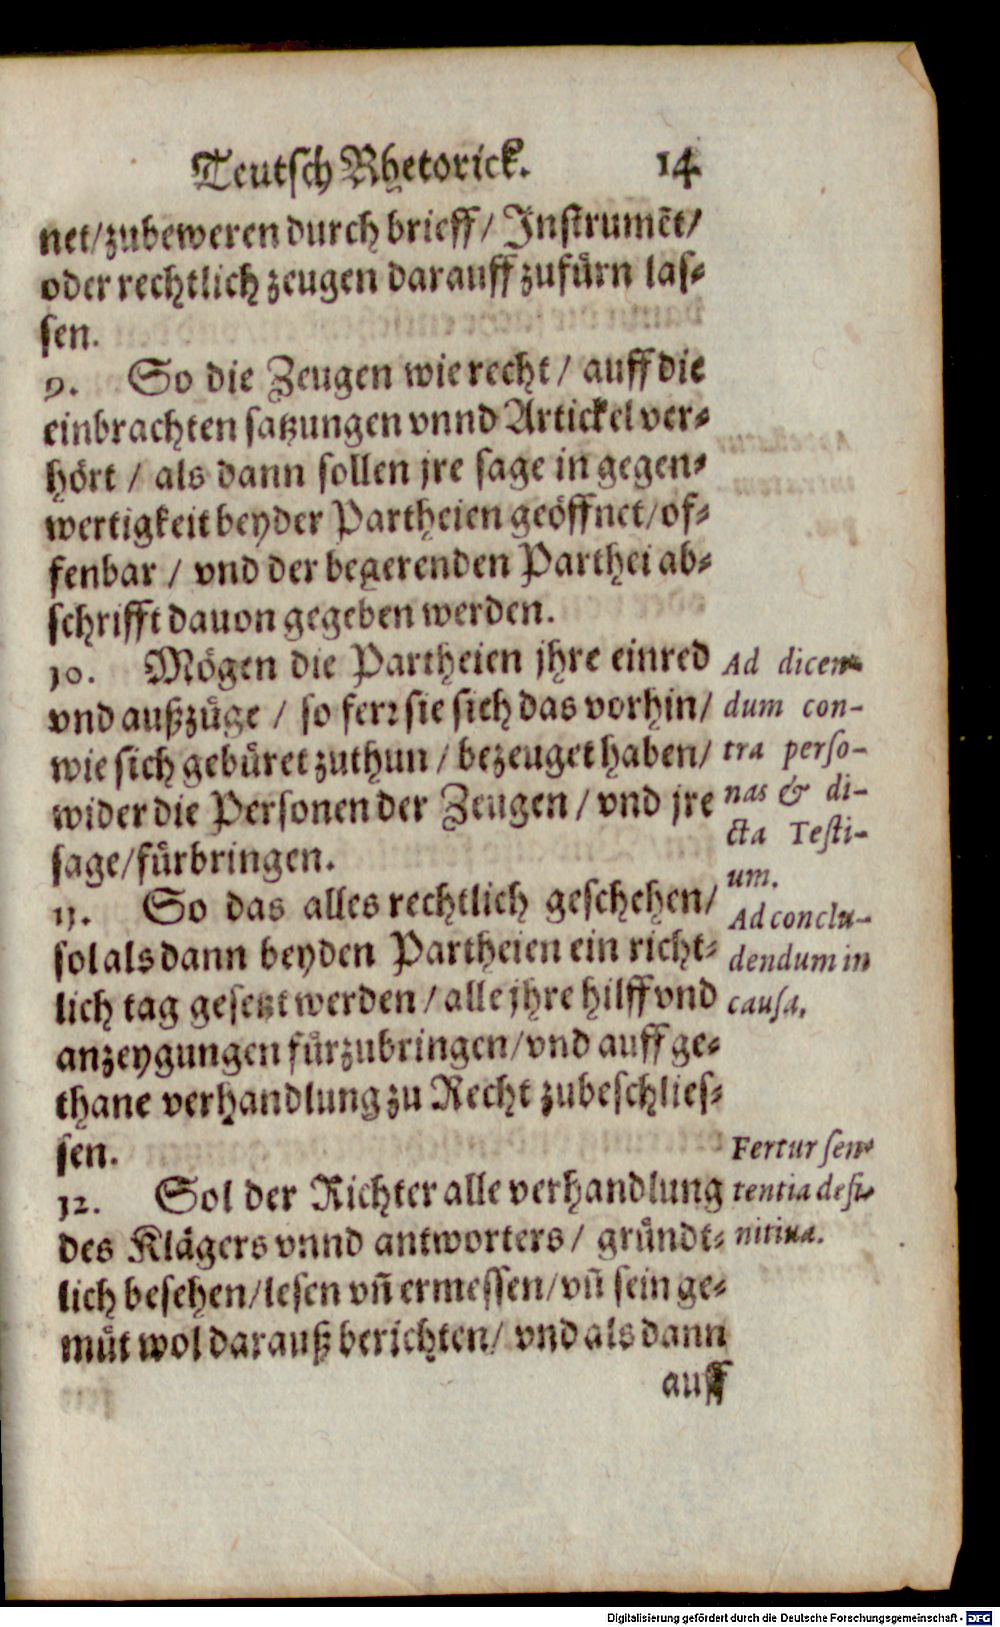 Teutsch Rhetorick. 14
net/zubeweren durch brieff/ Instrumēt/
oder rechtlich zeugen darauff zufürn las-
sen.
9. So die Zeugen wie recht/ auff die
einbrachten satzungen vnnd Artickel ver-
hört / als dann sollen jre sage in gegen-
wertigkeit beyder Partheien geöffnet/of-
fenbar / vnd der begerenden Parthei ab-
schrifft dauon gegeben werden.
10. Mögen die Partheien jhre einred
vnd außzüge / so ferr sie sich das vorhin/
wie sich gebüret zuthun / bezeuget haben/
wider die Personen der Zeugen / vnd jre
sage/fürbringen.
Ad dicen-
dum con-
tra perso-
nas & di-
cta Testi-
um.
11. So das alles rechtlich geschehen/
sol als dann beyden Partheien ein richt-
lich tag gesetzt werden / alle jhre hilff vnd
anzeygungen fürzubringen/vnd auff ge-
thane verhandlung zu Recht zubeschlies-
sen.
Ad conclu-
dendum in
causa.
12. Sol der Richter alle verhandlung
des Klägers vnnd antworters / gründt-
lich besehen/lesen vn̄ ermessen/vn̄ sein ge-
müt wol darauß berichten/ vnd als dann
Fertur sen-
tentia defi-
nitiua.
auff
Digitalisierung gefördert durch die Deutsche Forschungsgemeinschaft - DFG